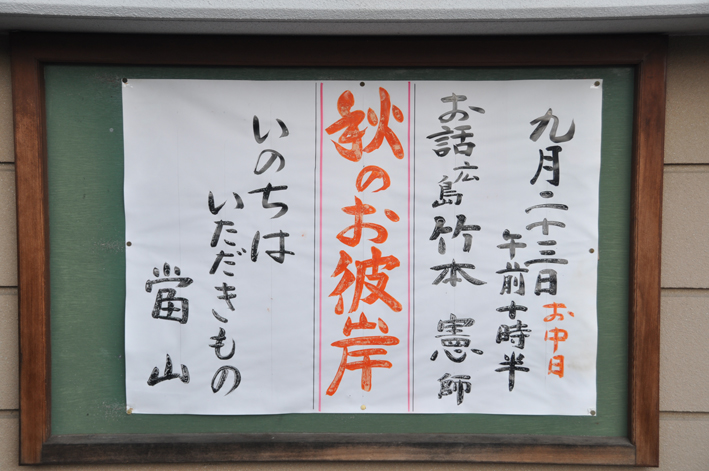 九月二十三日お中日
午前十時半
お話広島竹本憲師
秋のお彼岸
いのちは
いただきもの
當山